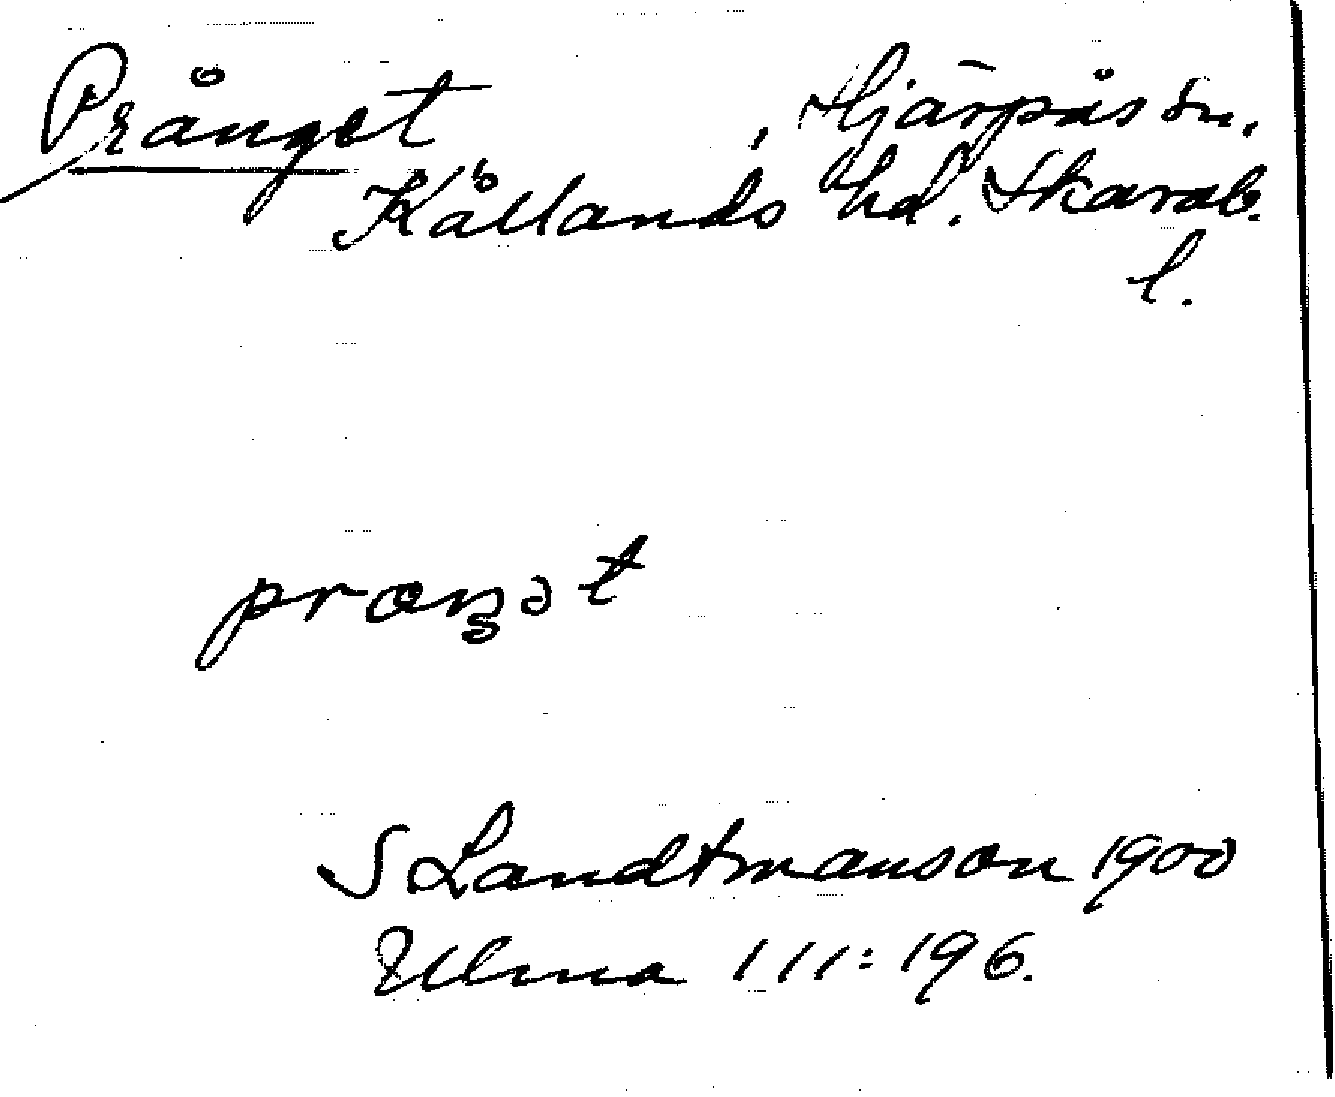 Prånget , Hjärpås sn.
Kållands hd. Skarab.
l.
praŋət
S Landtmanson 1900
Ulma 111:196.